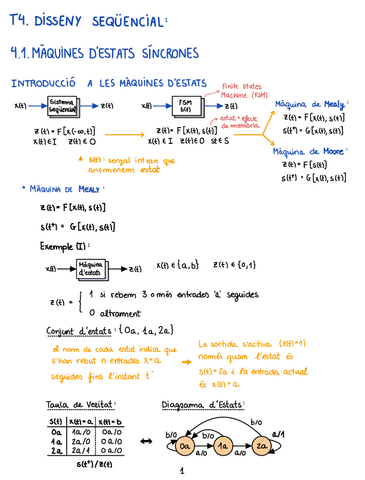 T4. DISSENY SEQÜENCIAL:
4.1. MÀQUINES D'ESTATS SÍNCRONES
INTRODUCCIÓ A LES MÀQUINES D'ESTATS
Finite States
Machine (FSM)
x(t) Sistema Seqüencial z(t)
x(t) FSM s(t) z(t)
estat = efecte
de memòria
Màquina de Mealy:
z(t) = F[x(t), s(t)]
s(t⁺) = G[x(t), s(t)]
z(t) = F[x(-∞,t)]
x(t) ∈ I z(t) ∈ O
z(t) = F[x(t), s(t)]
x(t) ∈ I z(t) ∈ O s(t) ∈ S
Màquina de Moore:
z(t) = F[s(t)]
s(t⁺) = G[x(t), s(t)]
s(t): senyal intern que
anomenem estat
* MÀQUINA DE MEALY:
z(t) = F[x(t), s(t)]
s(t⁺) = G[x(t), s(t)]
Exemple (I):
x(t) Màquina d'estats z(t) x(t) ∈ {a,b} z(t) ∈ {0,1}
z(t) = { 1 si rebem 3 o més entrades 'a' seguides
0 altrament
Conjunt d'estats: {0a, 1a, 2a}
el nom de cada estat indica que
s'han rebut n entrades x=a
seguides fins l'instant t⁻
La sortida s'activa (z(t)=1)
només quan l'estat és
s(t)=2a i la entrada actual
és x(t)=a
Taula de Veritat:
s(t) x(t)=a x(t)=b
0a 1a/0 0a/0
1a 2a/0 0a/0
2a 2a/1 0a/0
s(t⁺)/z(t)
Diagrama d'Estats:
b/0
b/0 b/0 a/1
0a 1a 2a
a/0 a/0
1